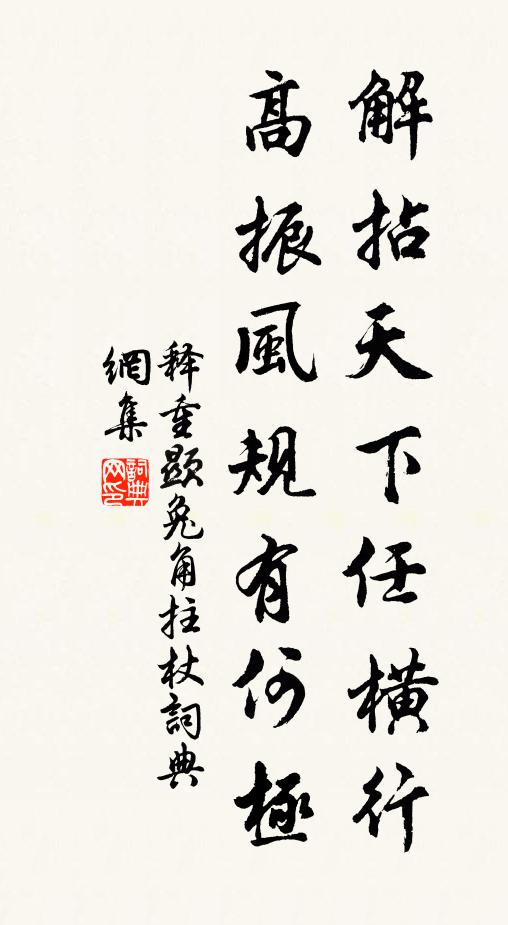 解拈天下任横行
高振風規有何極
释重顯兔角拄杖詞典
網集
詞典網印